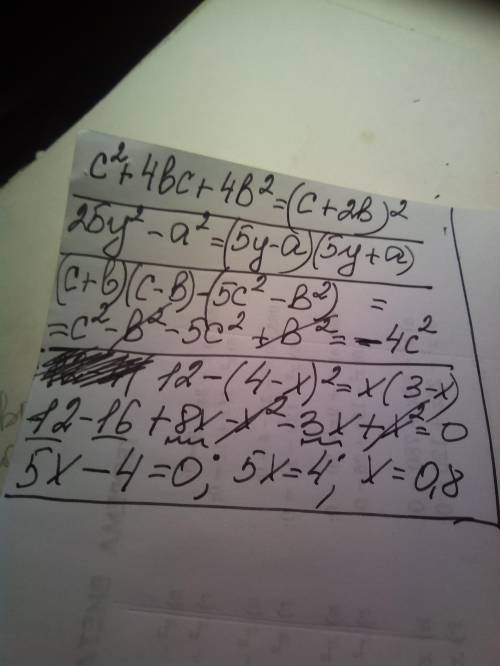 c²+4bc+4b²=(c+2b)²
25y²-a²=(5y-a)(5y+a)
(c+b)(c-b)-(5c²-b²) =
=c²-b²-5c²+b²=-4c²
12-(4-x)²=x(3-x)
12-16+8x-x²-3x+x²=0
5x-4=0; 5x=4; x=0,8